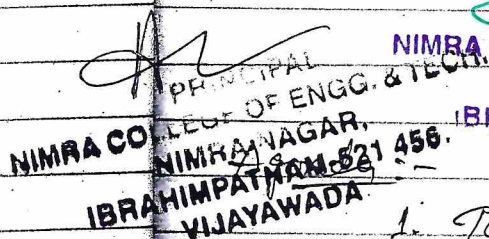 NIMRA
PRINCIPAL
NIMRA COLLEGE OF ENGG. & TECH.
NIMRA NAGAR,
IBRAHIMPATNAM-521 456.
VIJAYAWADA
1.